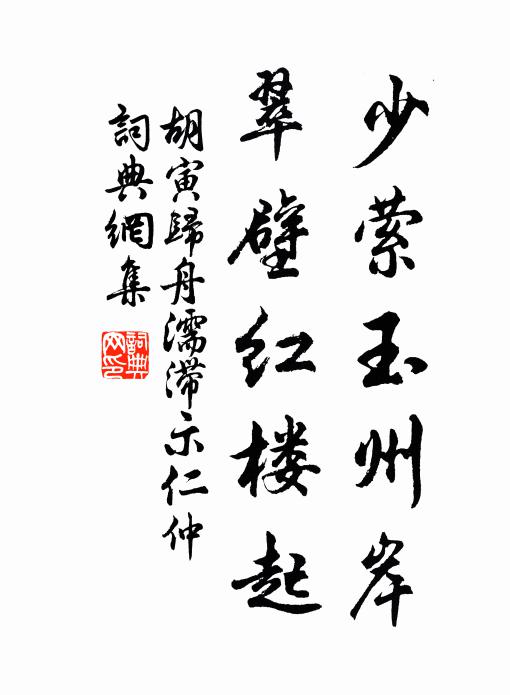 少萦玉州岸
翠壁红楼起
胡寅歸舟濡滞示仁仲
詞典網集
詞典网印